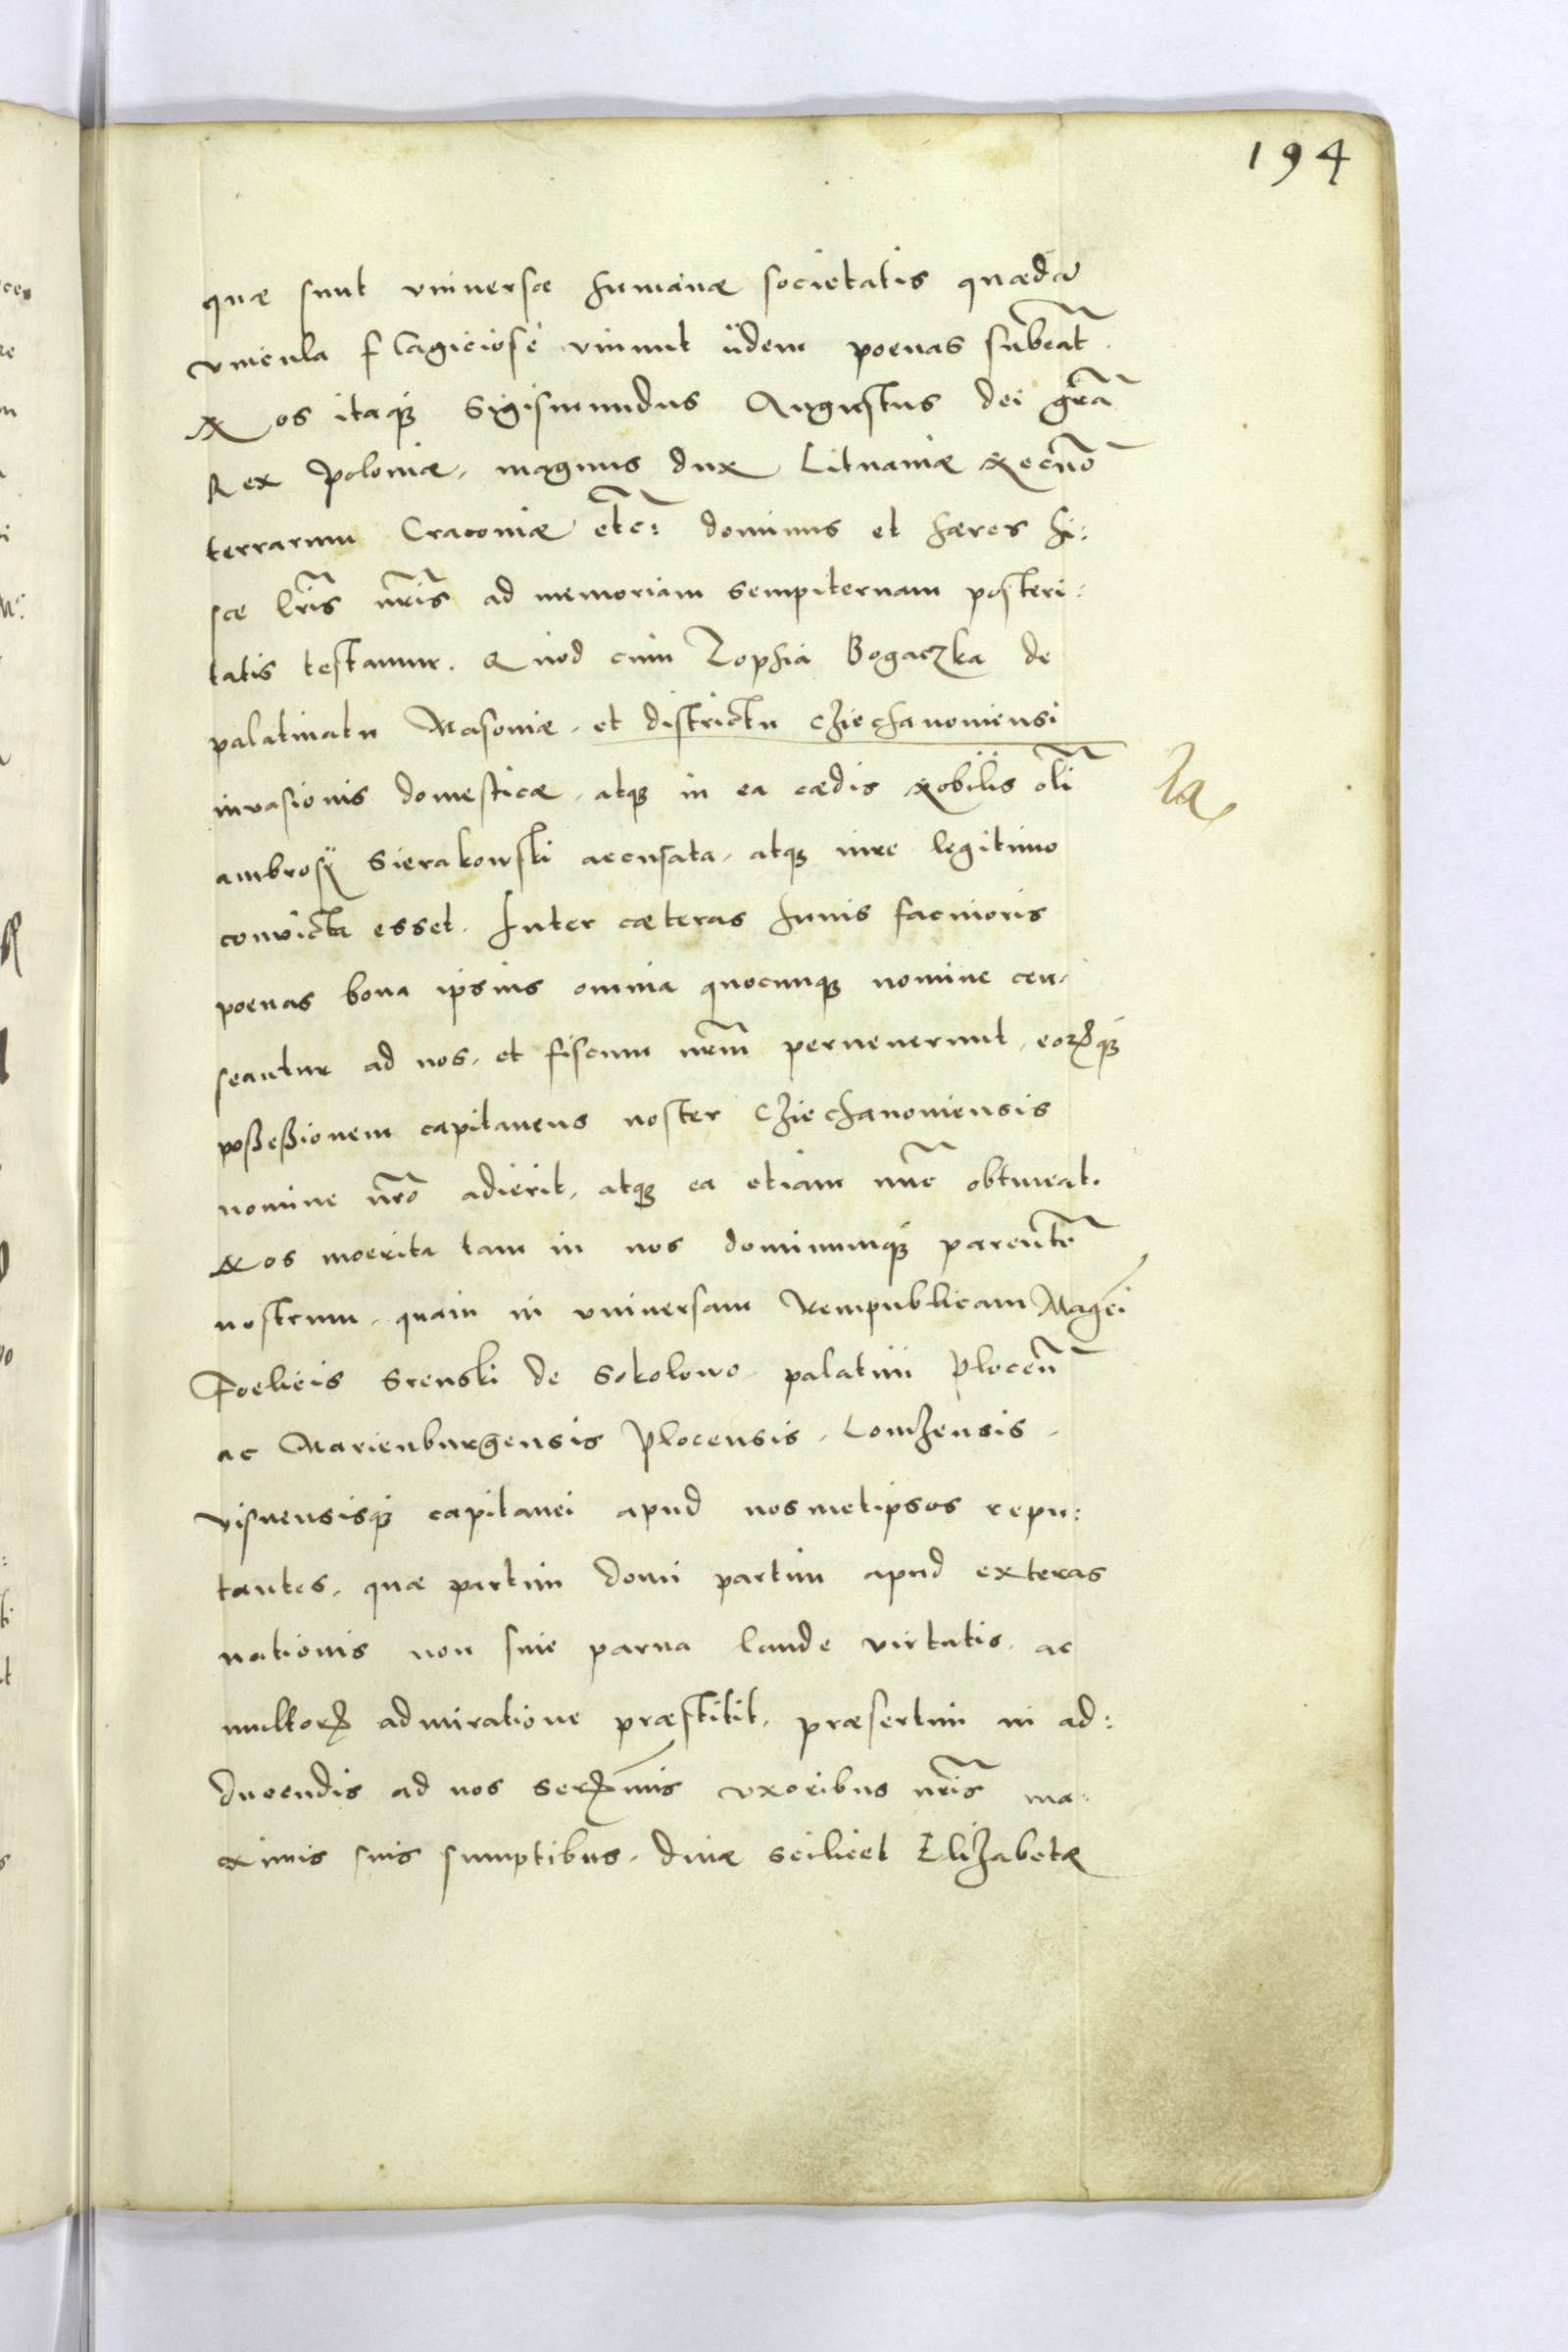 194
quæ sunt vniuersæ humanæ societatis quædã
vincula flagiciosé viuunt iidem poenas subeãt.
Nos itaq₃ Sigismundus Augustus dei gr̃a
Rex Poloniæ, magnus dux Lituaniæ Necnõ
terrarum Cracoviæ etc̃: dominus et hæres hi:
sce l̃ris nr̃is ad memoriam sempiternam posteri:
tatis testamur. Quod cum Zophia Bogaczka de
palatinatu Masoviæ, et districtu Cziechanoviensi
invasionis domesticæ, atq₃ in ea cædis Nobilis oli͂
ambrosij Sierakowski accusata, atq₃ iure legitimo
convicta esset. Inter cæteras huius facinoris
poenas bona ipsius omnia quocunq₃ nomine cen,
seantur ad nos, et fiscum nr̃m pervenerunt, eorũq₃
poßeßionem capitaneus noster Cziechanoviensis
nomine nr̃o adierit, atq₃ ea etiam nũc obtineat.
Nos moerita tam in nos dominumq₃ parentẽ
nostrum, quam in vniuersam Rempublicam Magc̃i
Foelicis Srenski de Sokolowo, palatini Plocen̄
ac Marienburgensis Plocensis, Lomzensis,
visnensisq₃ capitanei apud nosmetipsos repu:
tantes, quæ partim domi partim apud exteras
nationis non sine parva laude virtutis, ac
multorꝝ admiratione præstitit, præsertim in ad:
ducendis ad nos Serꝝmis vxoribus nr̃is ma,
ximis suis sumptibus, divæ scilicet Elizabetæ